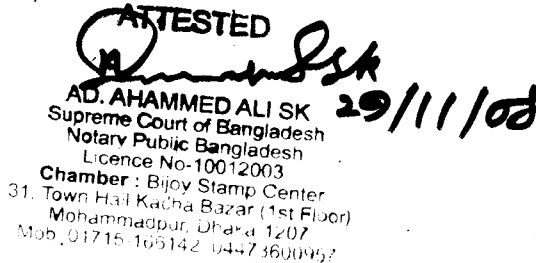 ATTESTED
29/11/08
AD. AHAMMED ALI SK
Supreme Court of Bangladesh
Notary Public Bangladesh
Licence No-10012003
Chamber : Bijoy Stamp Center
31, Town Hall Kacha Bazar (1st Floor)
Mohammadpur, Dhaka 1207
Mob. 01715-166142, 04473600957